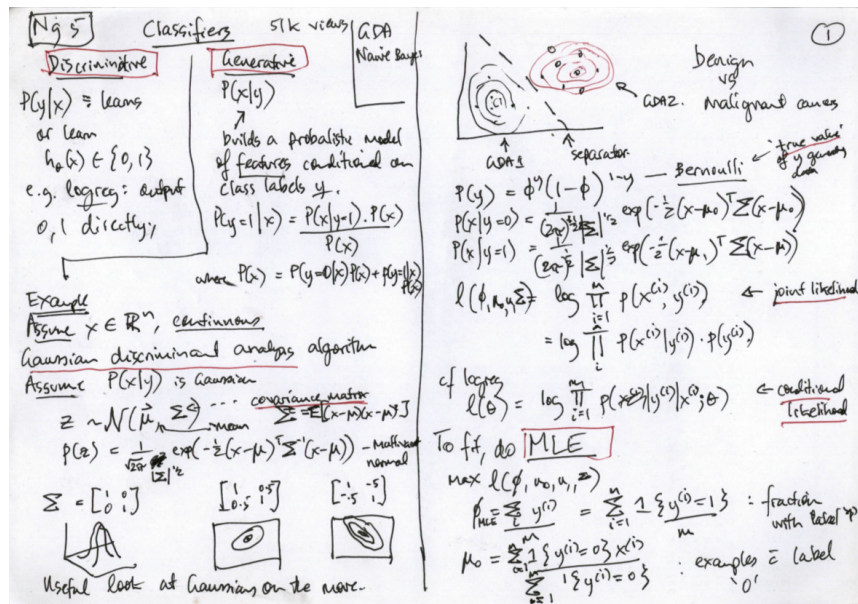 Ng 5
Classifiers
51k views
GDA
Naive Bayes
Discriminative
P(y|x) = learns
or learn
h_θ(x) ∈ {0,1}
e.g. logreg: output
0, 1 directly,
Generative
P(x|y)
builds a probalistic model
of features conditional on
class labels y.
P(y=1|x) = P(x|y=1).P(x) / P(x)
where P(x) = P(y=0|x)P(x) + p(y=1|x) P(x)
Example
Assume x ∈ ℝⁿ, continuous
Gaussian discriminant analysis algorithm
Assume P(x|y) is Gaussian
covariance matrix
z ~ N(μ⃗, Σ) ... Σ = E[(x-μ)(x-μ)ᵀ]
mean
p(z) = 1/(√2π |Σ|^½) exp(-½(x-μ)ᵀ Σ⁻¹(x-μ)) - Multivariate
normal
Σ = [1 0; 0 1] [1 0.5; 0.5 1] [1 -.5; -.5 1]
Useful look at Gaussians on the move.
1
benign
vs
malignant cancer
GDA2.
GDA1
separator
P(y) = φ^y (1-φ)^(1-y) — Bernoulli
"true value"
of y
P(x|y=0) = 1/((2π)^½ |Σ|^½) exp(-½(x-μ₀)ᵀ Σ(x-μ₀)
P(x|y=1) = 1/((2π)^½ |Σ|^½) exp(-½(x-μ₁)ᵀ Σ(x-μ))
l(φ, μ₀, μ, Σ) = log ∏_{i=1}^m p(x⁽ⁱ⁾, y⁽ⁱ⁾) ← joint likelihood
= log ∏_i^m p(x⁽ⁱ⁾|y⁽ⁱ⁾) . p(y⁽ⁱ⁾)
cf logreg
l(θ) = log ∏_{i=1}^m p(y⁽ⁱ⁾|x⁽ⁱ⁾;θ) ← conditional
likelihood
To fit, do MLE
max l(φ, μ₀, μ, Σ)
φ_MLE = Σ_i y⁽ⁱ⁾ / m = Σ_{i=1}^m 1{y⁽ⁱ⁾=1} / m : fraction
with label
μ₀ = Σ_{i=1}^m 1{y⁽ⁱ⁾=0} x⁽ⁱ⁾ / Σ_{i=1}^m 1{y⁽ⁱ⁾=0} : examples c̄ label
'0'